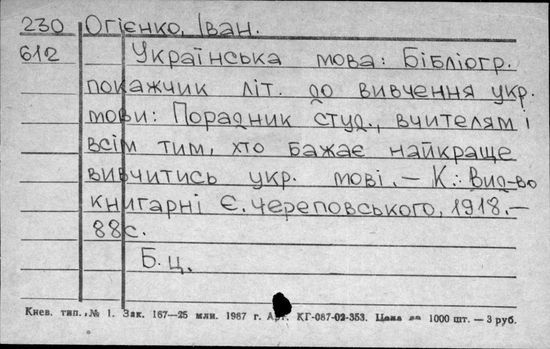 230 Огієнко, Іван.
612 Українська мова: Бібліогр.
покажчик літ. до вивчення укр.
мови: Порадник студ., вчителям і
всім тим, хто бажає найкраще
вивчитись укр. мові. – К.: Вид-во
книгарні Є. Череповського, 1918. –
88с.
Б.ц.
Киев. тип., № 1. Зак. 167—25 млн. 1987 г. Арт. КГ-087-02-353. Цена за 1000 шт. — 3 руб.